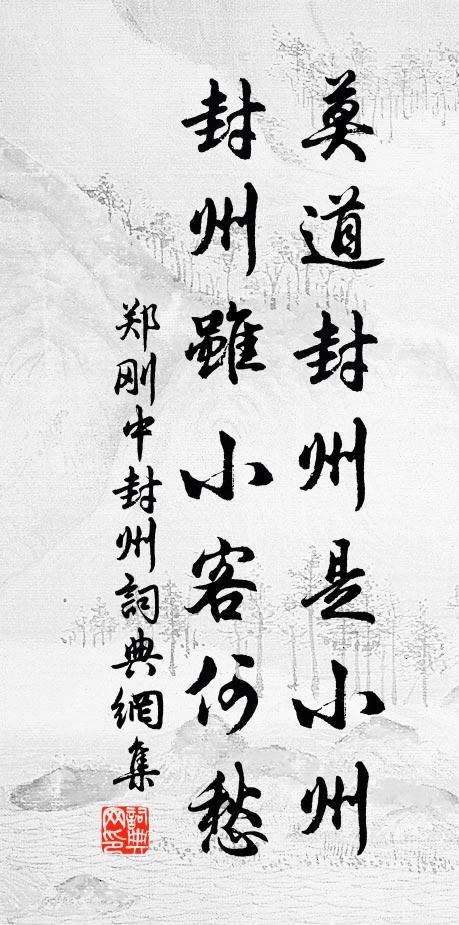 莫道封州是小州
封州雖小客何愁
郑刚中封州詞典網集
詞典网印